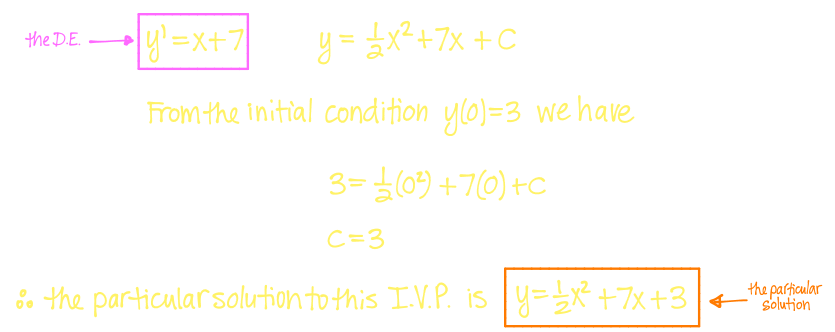 the D.E. → y' = x+7 y = ½x² + 7x + C
From the initial condition y(0)=3 we have
3 = ½(0²) + 7(0) + C
C = 3
∴ the particular solution to this I.V.P. is y = ½x² + 7x + 3 ← the particular solution